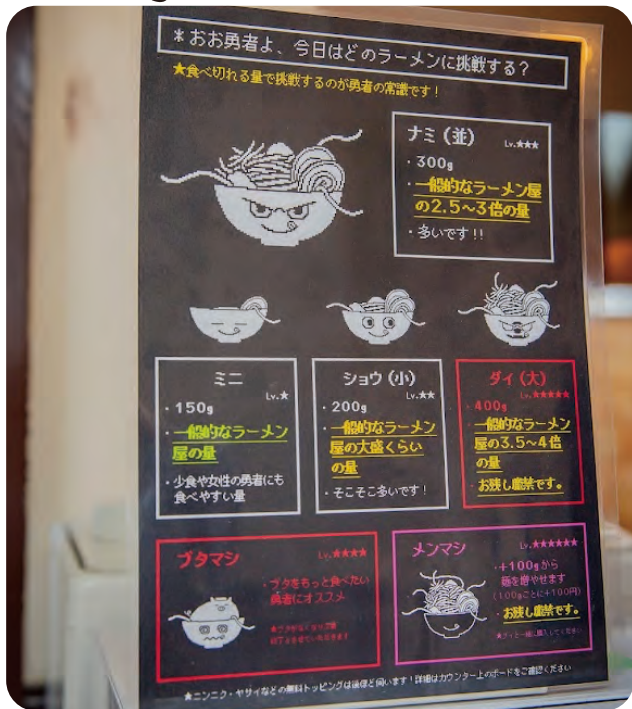 *おお勇者よ、今日はどのラーメンに挑戦する？
★食べ切れる量で挑戦するのが勇者の常識です！
ナミ（並）
Lv.★★★
・300g
・一般的なラーメン屋
の2.5〜3倍の量
・多いです!!
ミニ
Lv.★
・150g
・一般的なラーメン
屋の量
・少食や女性の勇者にも
食べやすい量
ショウ（小）
Lv.★★
・200g
・一般的なラーメン
屋の大盛くらい
の量
・そこそこ多いです！
ダイ（大）
Lv.★★★★★
・400g
・一般的なラーメン
屋の3.5〜4倍
の量
・お残し厳禁です。
ブタマシ
Lv.★★★★
・ブタをもっと食べたい
勇者にオススメ
メンマシ
Lv.★★★★★★
・+100gから
麺を増やせます
(100gごとに+100円)
・お残し厳禁です。
★ダイと一緒に購入してください
★ニンニク・ヤサイなどの無料トッピングは後ほど伺います！詳細はカウンター上のボードをご確認ください